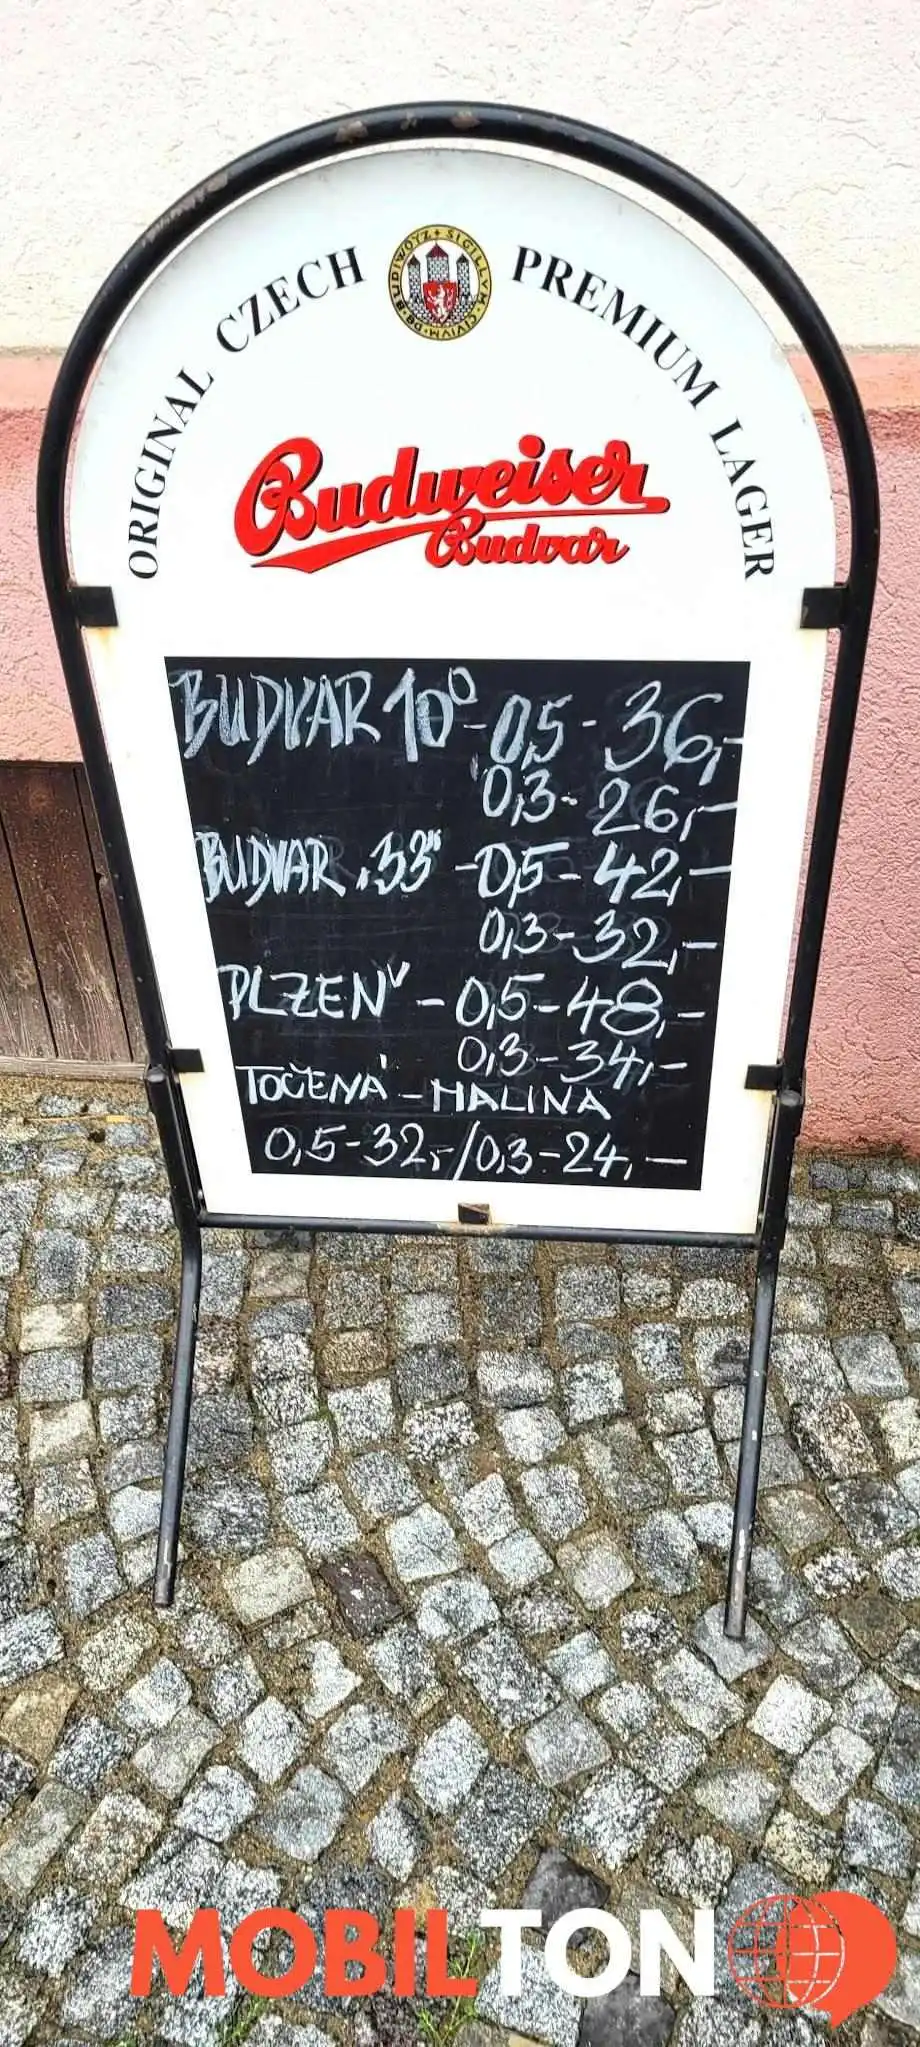 ORIGINAL CZECH PREMIUM LAGER
SIGILLVM CIVIVM DE BUDIWOYZ
Budweiser
Budvar
BUDVAR 10° - 0,5 - 36,-
0,3 - 26,-
BUDVAR „33" - 0,5 - 42,-
0,3 - 32,-
PLZEŇ - 0,5 - 48,-
0,3 - 34,-
TOČENÁ - MALINA
0,5 - 32,- / 0,3 - 24,-
MOBILTON